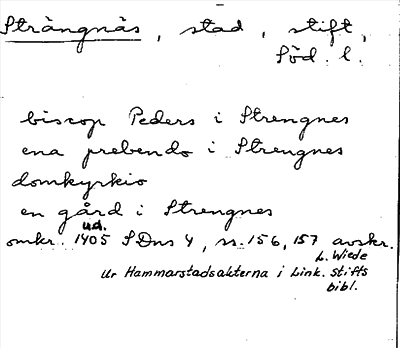 Strängnäs, stad, stift,
Söd. l.
biscop Peders i Strengnes
ena prebendo i Strengnes
domkyrkio
en gård i Strengnes
ud.
omkr. 1405 SDns 4, ss. 156, 157 avskr.
L. Wiede
Ur Hammarstadsakterna i Link. stifts
bibl.